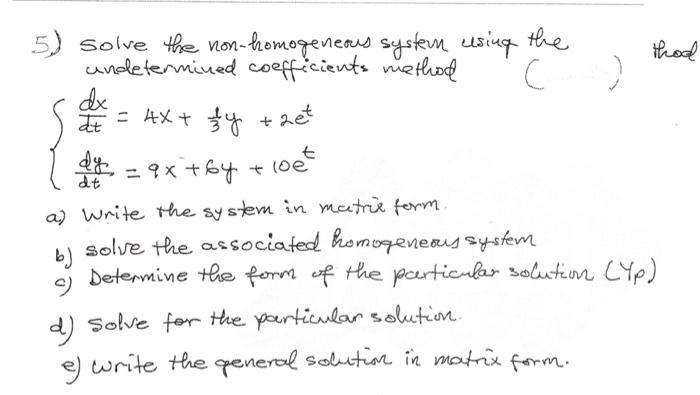 5) Solve the non-homogeneous system using the thod
undetermined coefficients method ( )
dx/dt = 4x + 1/3 y + 2e^t
dy/dt = 9x + 6y + 10e^t
a) Write the system in matrix form.
b) Solve the associated homogeneous system
c) Determine the form of the particular solution (Yp)
d) Solve for the particular solution.
e) Write the general solution in matrix form.